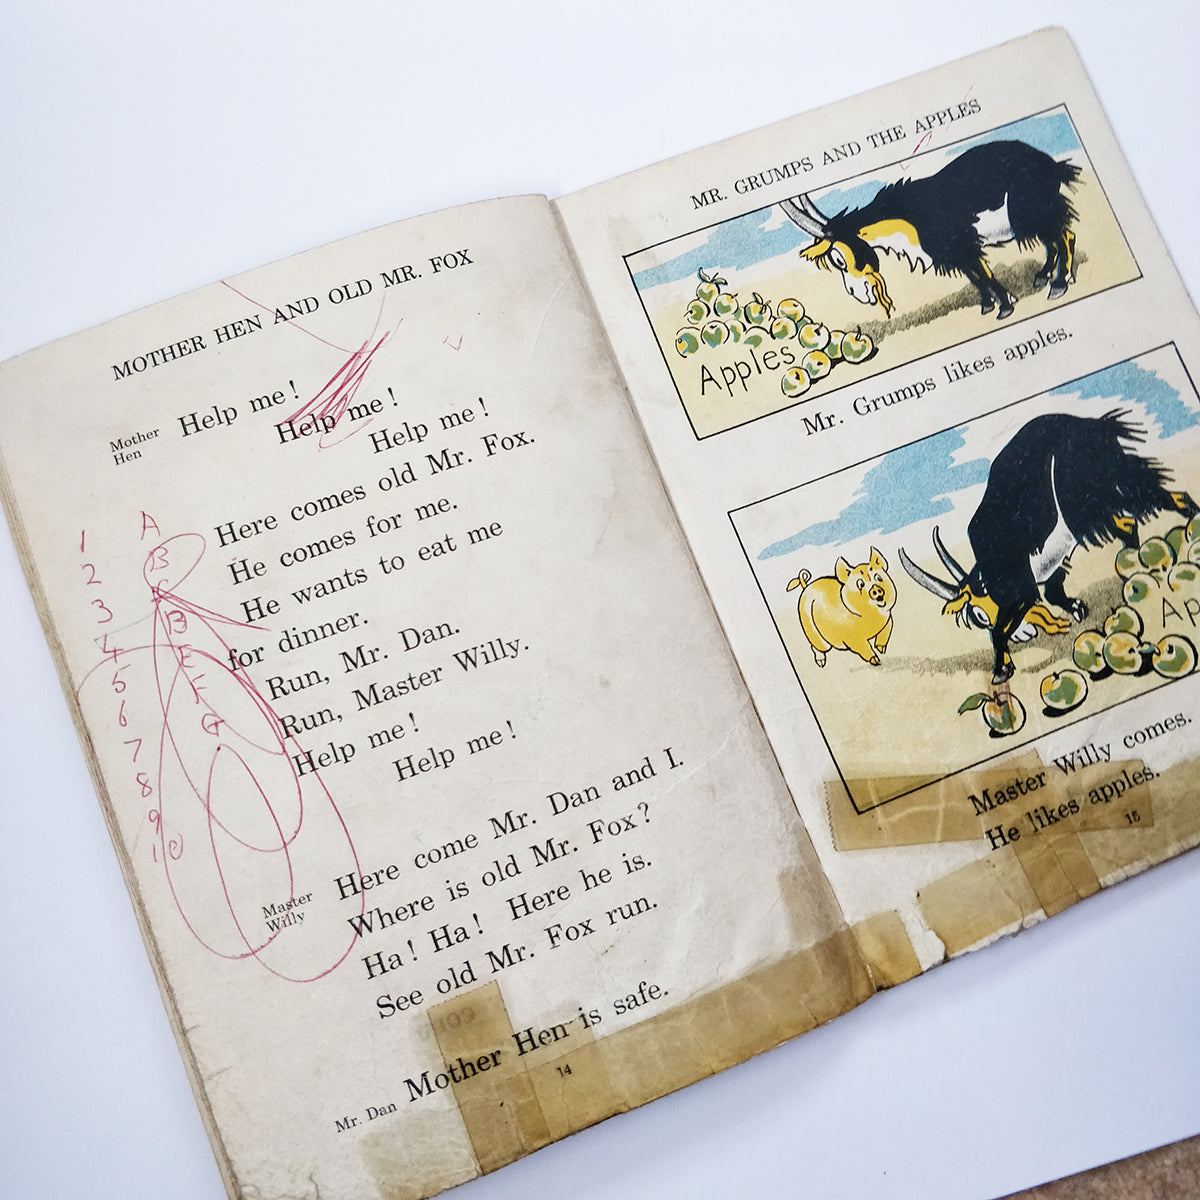 MOTHER HEN AND OLD MR. FOX
Mother
Hen
Help me!
Help me!
Help me!
Here comes old Mr. Fox.
He comes for me.
He wants to eat me
for dinner.
Run, Mr. Dan.
Run, Master Willy.
Help me!
Help me!
Master
Willy
Here come Mr. Dan and I.
Where is old Mr. Fox?
Ha! Ha! Here he is.
See old Mr. Fox run.
Mr. Dan
Mother Hen is safe.
14
1 A
2 B
3 C
4 B
5 E
6 F
7 G
8
9
10
MR. GRUMPS AND THE APPLES
Apples
Mr. Grumps likes apples.
Ap
Master Willy comes.
He likes apples.
15